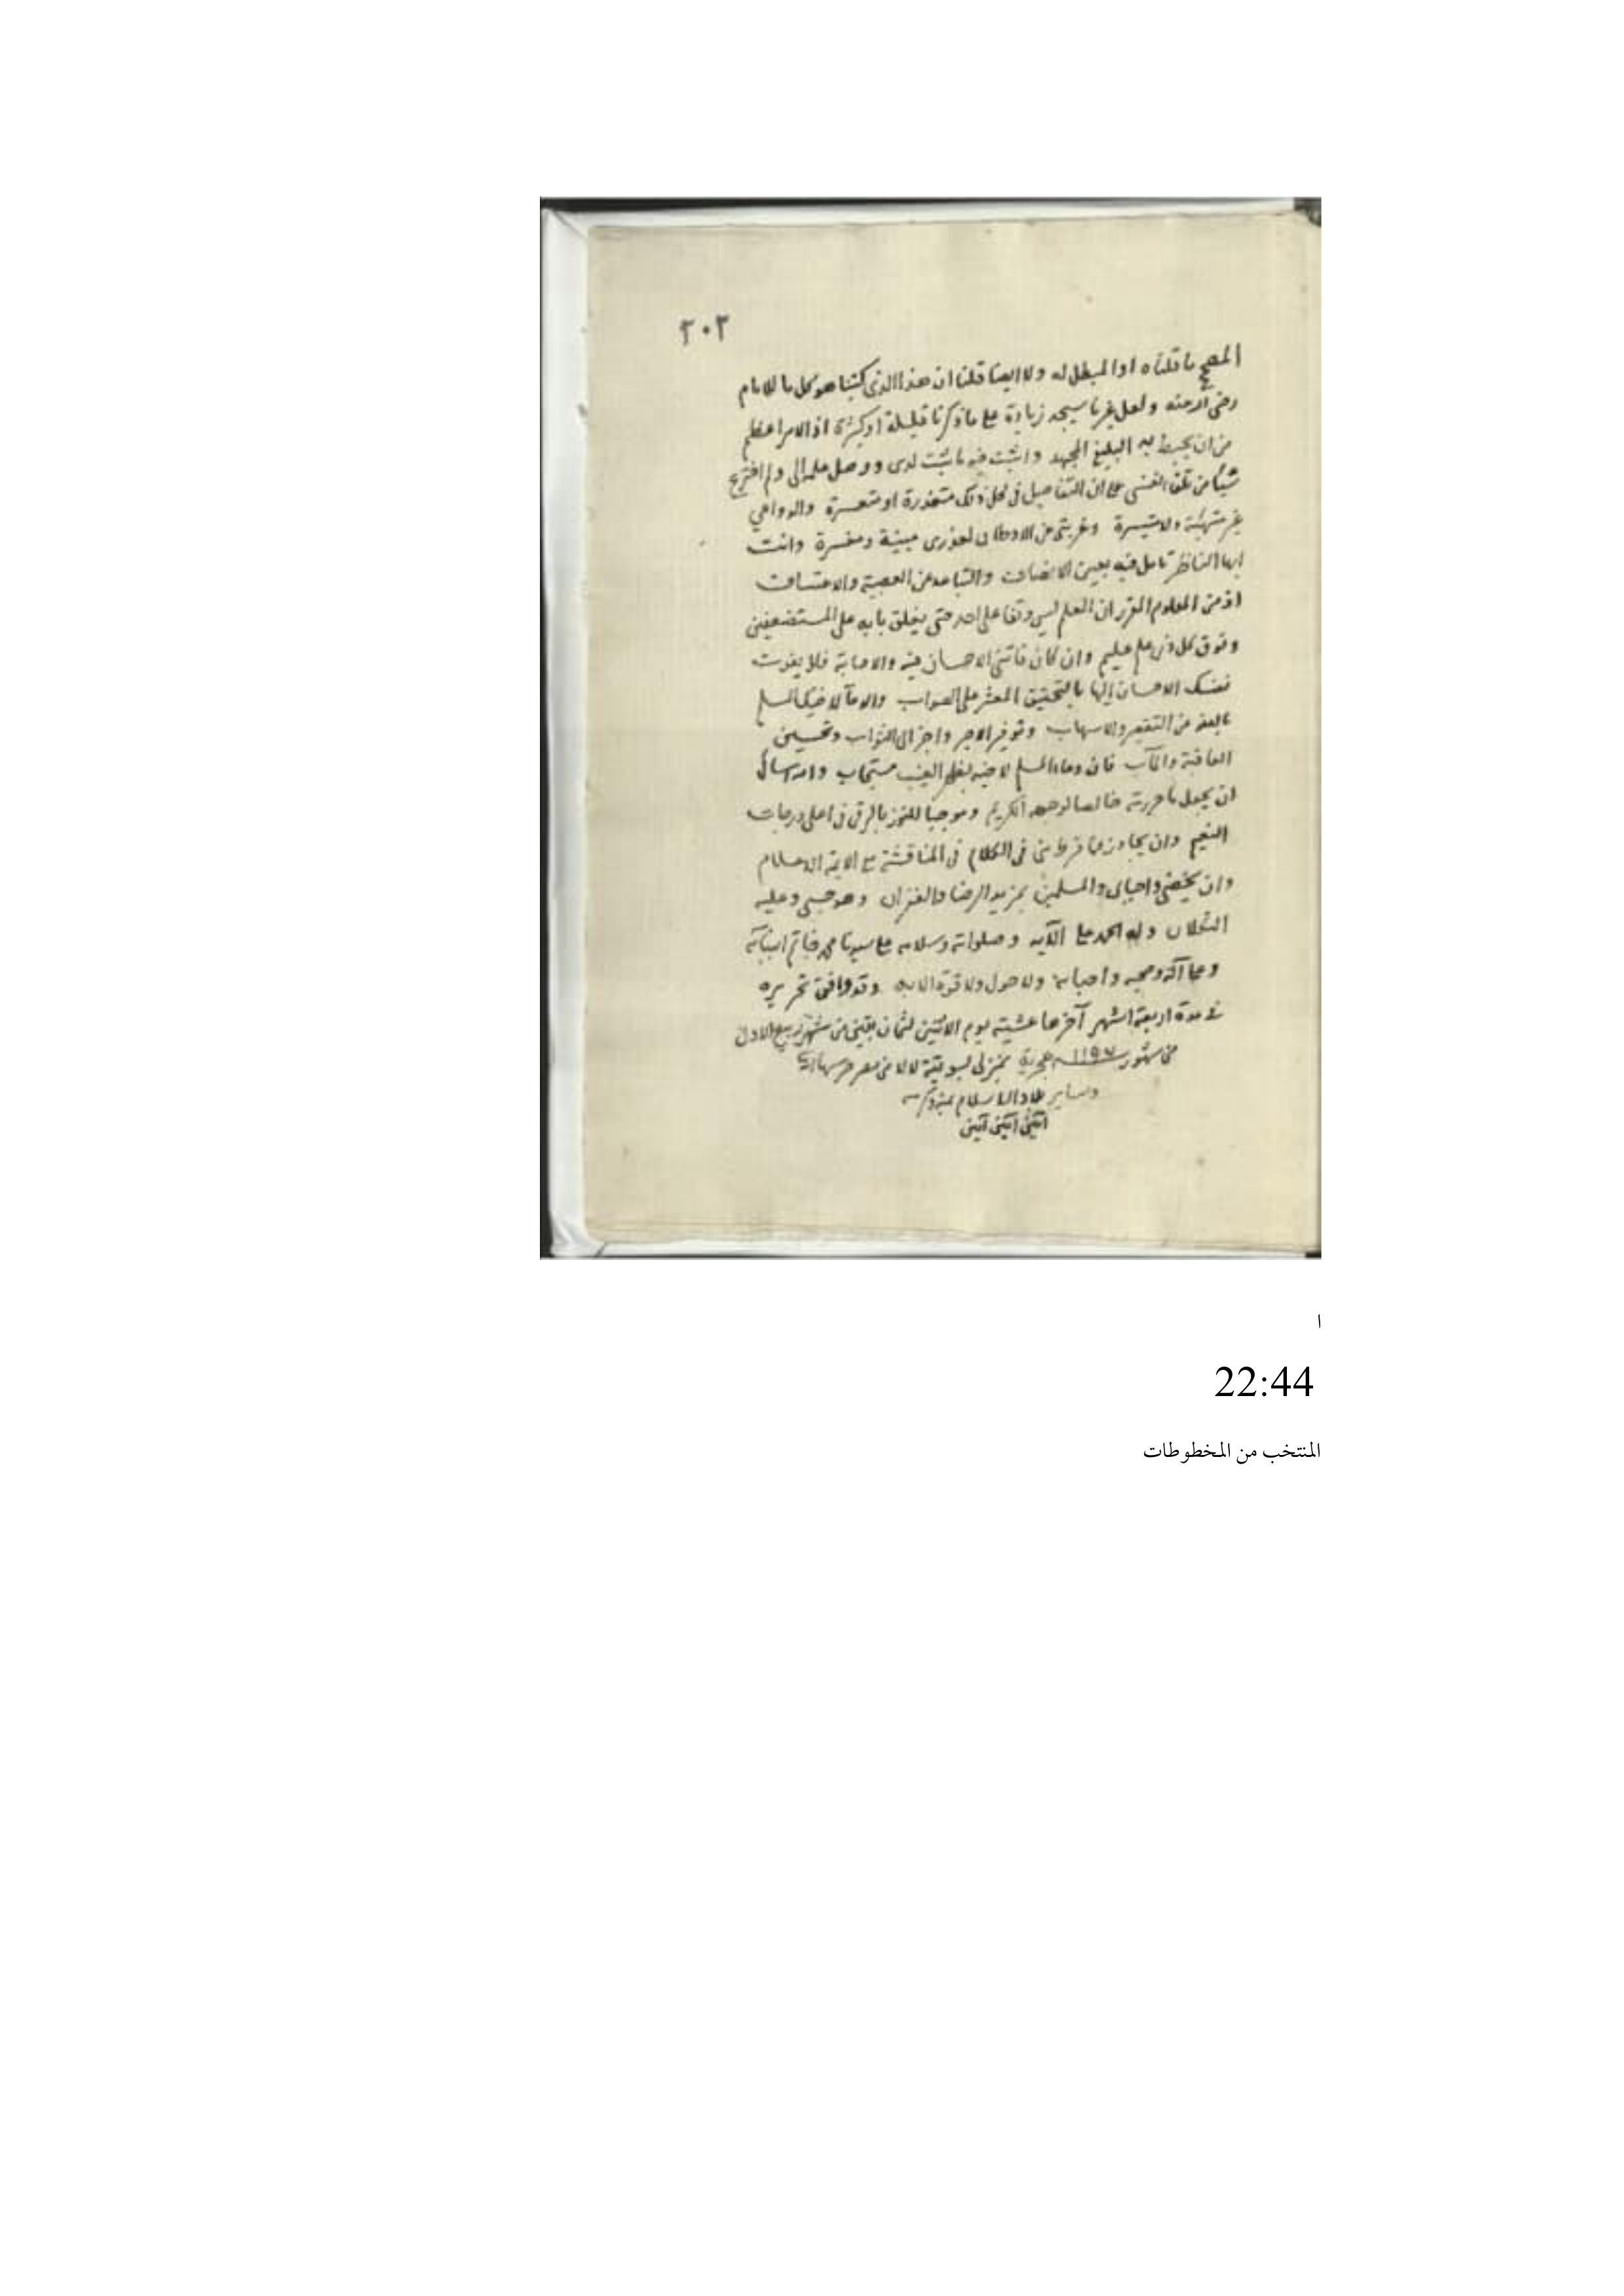 ٣٠٢
المصحح ما قلناه او المبطل له ولا ايضا قلنا ان هذا الذى كتبنا هو كل ما للامام
رضى الله عنه ولعل غيرنا سيجد زيادة على ما ذكرنا قليلة او كثيرة اذ الامر اعظم
من ان يحيط به البليغ المجهد واثبت فيه ما ثبت لدى ووصل علمه الى ولم اخترع
شيئا من تلقاء نفسى على ان التفاصيل فى كل ذلك متعذرة او متعسرة والدواعي
غير متهيئة ولا متيسرة وغربتى عن الاوطان لعذرى مبينة ومفسرة وانت
ايها الناظر تامل فيه بعين الانصاف والتباعد عن العصبية والاعتساف
اذ من المعلوم المقرر ان العلم ليس وقفا على احد حتى يغلق بابه على المستضعفين
وفوق كل ذى علم عليم وان كان فاتنى الاحسان فيه والاصابة فلا يفوت
نفسك الاحسان اليها بالتحقيق المعثر على الصواب والدعآ لاخيك المسلم
بالعفو عن التقصير والاسهاب وتوفير الاجر واجزال الثواب وتحسين
العاقبة والمآب فان دعاء المسلم لاخيه بظهر الغيب مستجاب والله اسال
ان يجعل ما حررته خالصا لوجهه الكريم وموجبا للفوز بالرقى فى اعلى درجات
النعيم وان يتجاوز عما فرط منى فى الكلام فى المناقشة مع الايمة الاعلام
وان يخصنى واحبابى والمسلمين بمزيد الرضا والغفران وهو حسبى وعليه
التكلان وله الحمد على الآيه وصلواته وسلامه على سيدنا محمد خاتم انبيآئه
وعلى آله وصحبه واحبابه ولا حول ولا قوة الا به وقد وافق تحريره
فى مدة اربعة اشهر آخرها عشية يوم الاثنين لثمان بقين من شهر ربيع الاول
من شهور ١١٥٧ هجرية بمنزلى بسويقة لالا من مصر حرسها الله
وساير بلاد الاسلام بمنه وكرمه
آمين آمين آمين
ا
22:44
المنتخب من المخطوطات